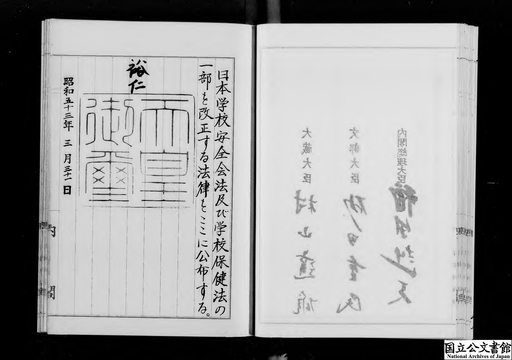 内閣総理大臣 福田赳夫
文部大臣 砂田重民
大蔵大臣 村山達雄
日本学校安全会法及び学校保健法の
一部を改正する法律をここに公布する。
裕仁
天皇
御璽
昭和五十三年三月三十一日
内閣
国立公文書館
National Archives of Japan